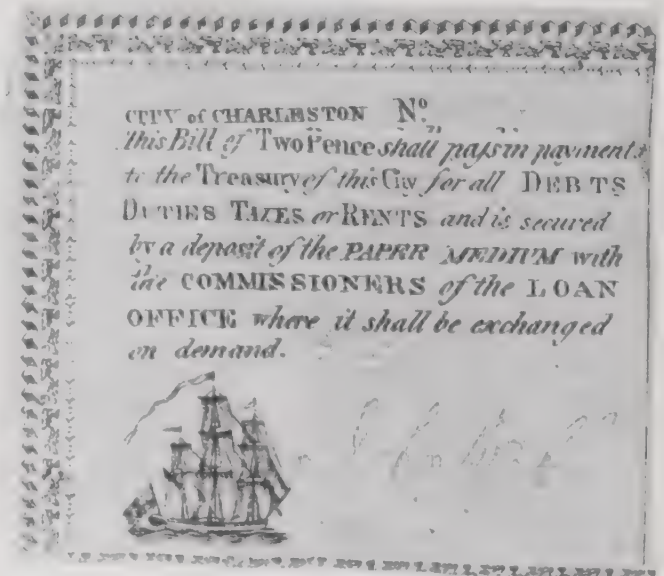 CITY of CHARLESTON Nº
This Bill of Two Pence shall pass in payment
to the Treasury of this City for all DEBTS
DUTIES TAXES or RENTS and is secured
by a deposit of the PAPER MEDIUM with
the COMMISSIONERS of the LOAN
OFFICE where it shall be exchanged
on demand.